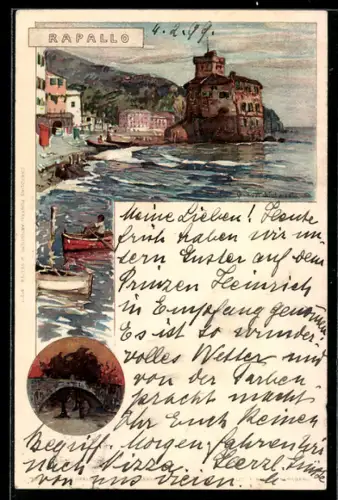 RAPALLO
4.2.99.
Meine Lieben! Heute
früh haben wir un-
sern Gustav auf dem
Prinzen Heinrich
in Empfang genommen
Es ist so wunder-
volles Wetter und
von der Farben-
pracht macht
Ihr Euch keinen
Begriff Morgen fahren wir
nach Nizza. Herzl. Grüße
von uns vieren.